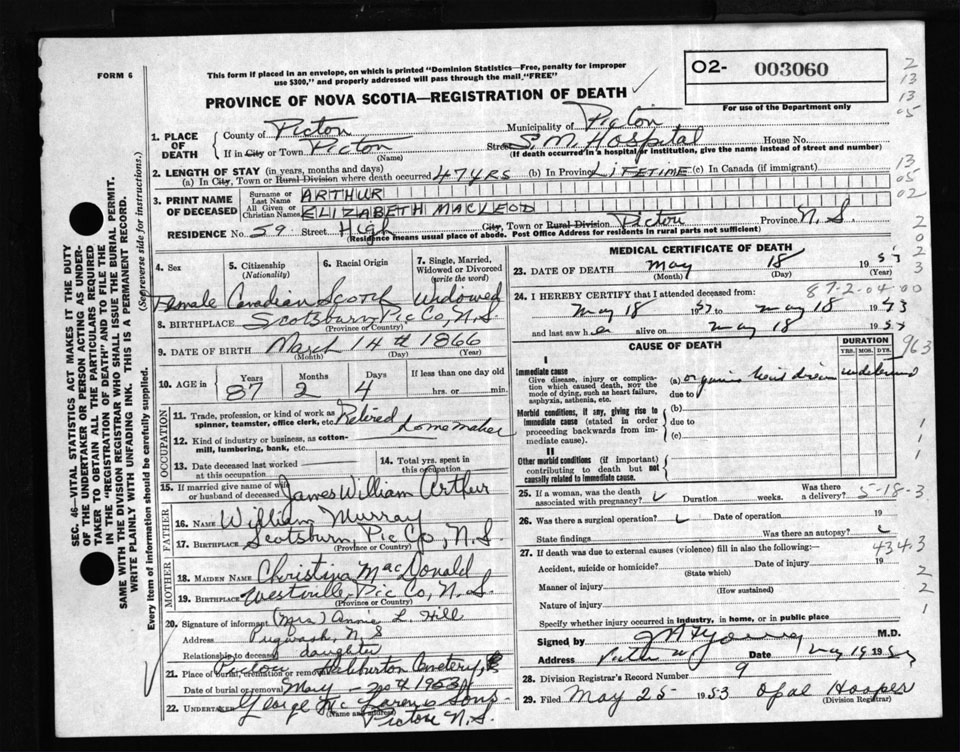 FORM 6
This form if placed in an envelope, on which is printed "Dominion Statistics—Free, penalty for improper
use $300," and properly addressed will pass through the mail "FREE"
O2- 003060
For use of the Department only
PROVINCE OF NOVA SCOTIA—REGISTRATION OF DEATH
2
13
13
05
13
05
02
SEC. 46—VITAL STATISTICS ACT MAKES IT THE DUTY
OF THE UNDERTAKER OR PERSON ACTING AS UNDER-
TAKER TO OBTAIN ALL THE PARTICULARS REQUIRED
IN THE "REGISTRATION OF DEATH" AND TO FILE THE
SAME WITH THE DIVISION REGISTRAR WHO SHALL ISSUE THE BURIAL PERMIT.
WRITE PLAINLY WITH UNFADING INK. THIS IS A PERMANENT RECORD.
Every item of information should be carefully supplied. (See reverse side for instructions.)
1. PLACE OF DEATH
County of Picton Municipality of Picton
If in City or Town Picton Street S. M. Hospital House No.
(Name) (If death occurred in a hospital or institution, give the name instead of street and number)
2. LENGTH OF STAY (in years, months and days)
(a) In City, Town or Rural Division where death occurred 47 YRS (b) In Province LIFETIME (c) In Canada (if immigrant)
3. PRINT NAME OF DECEASED
Surname or Last Name ARTHUR
All Given or Christian Names ELIZABETH MACLEOD
RESIDENCE No. 59 Street High City, Town or Rural Division Picton Province N. S.
(Residence means usual place of abode. Post Office Address for residents in rural parts not sufficient)
4. Sex 5. Citizenship (Nationality) 6. Racial Origin 7. Single, Married, Widowed or Divorced (write the word)
Female Canadian Scotch Widowed
8. BIRTHPLACE Scotsburn, Pic Co, N. S.
(Province or Country)
9. DATE OF BIRTH March 14th 1866
(Month) (Day) (Year)
10. AGE in Years Months Days If less than one day old
87 2 4 hrs. or min.
OCCUPATION
11. Trade, profession, or kind of work as spinner, teamster, office clerk, etc. Retired
Homemaker
12. Kind of industry or business, as cotton-mill, lumbering, bank, etc.
13. Date deceased last worked at this occupation
14. Total yrs. spent in this occupation
15. If married give name of wife or husband of deceased James William Arthur
FATHER
16. NAME William Murray
17. BIRTHPLACE Scotsburn, Pic Co, N. S.
(Province or Country)
MOTHER
18. MAIDEN NAME Christina MacDonald
19. BIRTHPLACE Westville, Pic Co, N. S.
(Province or Country)
20. Signature of informant (Mrs) Annie L. Hill
Address Pugwash, N. S
Relationship to deceased daughter
21. Place of burial, cremation or removal Haliburton Cemetery,
Date of burial or removal May - 20th 1953
22. UNDERTAKER George sons
(Name and address) Picton N. S.
MEDICAL CERTIFICATE OF DEATH
23. DATE OF DEATH May 18 1953
(Month) (Day) (Year)
87-2-04-00
24. I HEREBY CERTIFY that I attended deceased from:
May 18 1953 to May 18 1953
and last saw her alive on May 18 1953
CAUSE OF DEATH
DURATION
YRS. MOS. DYS.
963
I
Immediate cause
Give disease, injury or complication which caused death, NOT the mode of dying, such as heart failure, asphyxia, asthenia, etc.
(a) heart
due to
Morbid conditions, if any, giving rise to immediate cause (stated in order proceeding backwards from immediate cause).
(b)
due to
(c)
II
Other morbid conditions (if important) contributing to death but not causally related to immediate cause.
25. If a woman, was the death associated with pregnancy? Duration weeks. Was there a delivery?
5-18-3
26. Was there a surgical operation? Date of operation 19
State findings Was there an autopsy?
27. If death was due to external causes (violence) fill in also the following:—
434.3
Accident, suicide or homicide? Date of injury 19
(State which)
Manner of injury
(How sustained)
Nature of injury
Specify whether injury occurred in industry, in home, or in public place
Signed by Young M.D.
Address Date May 19 1953
28. Division Registrar's Record Number 9
29. Filed May 25 1953 Opal Hooper
(Division Registrar)